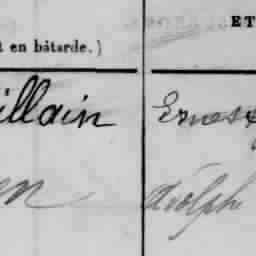 ET
t en bâtarde.)
illain Ernest
en Adolph